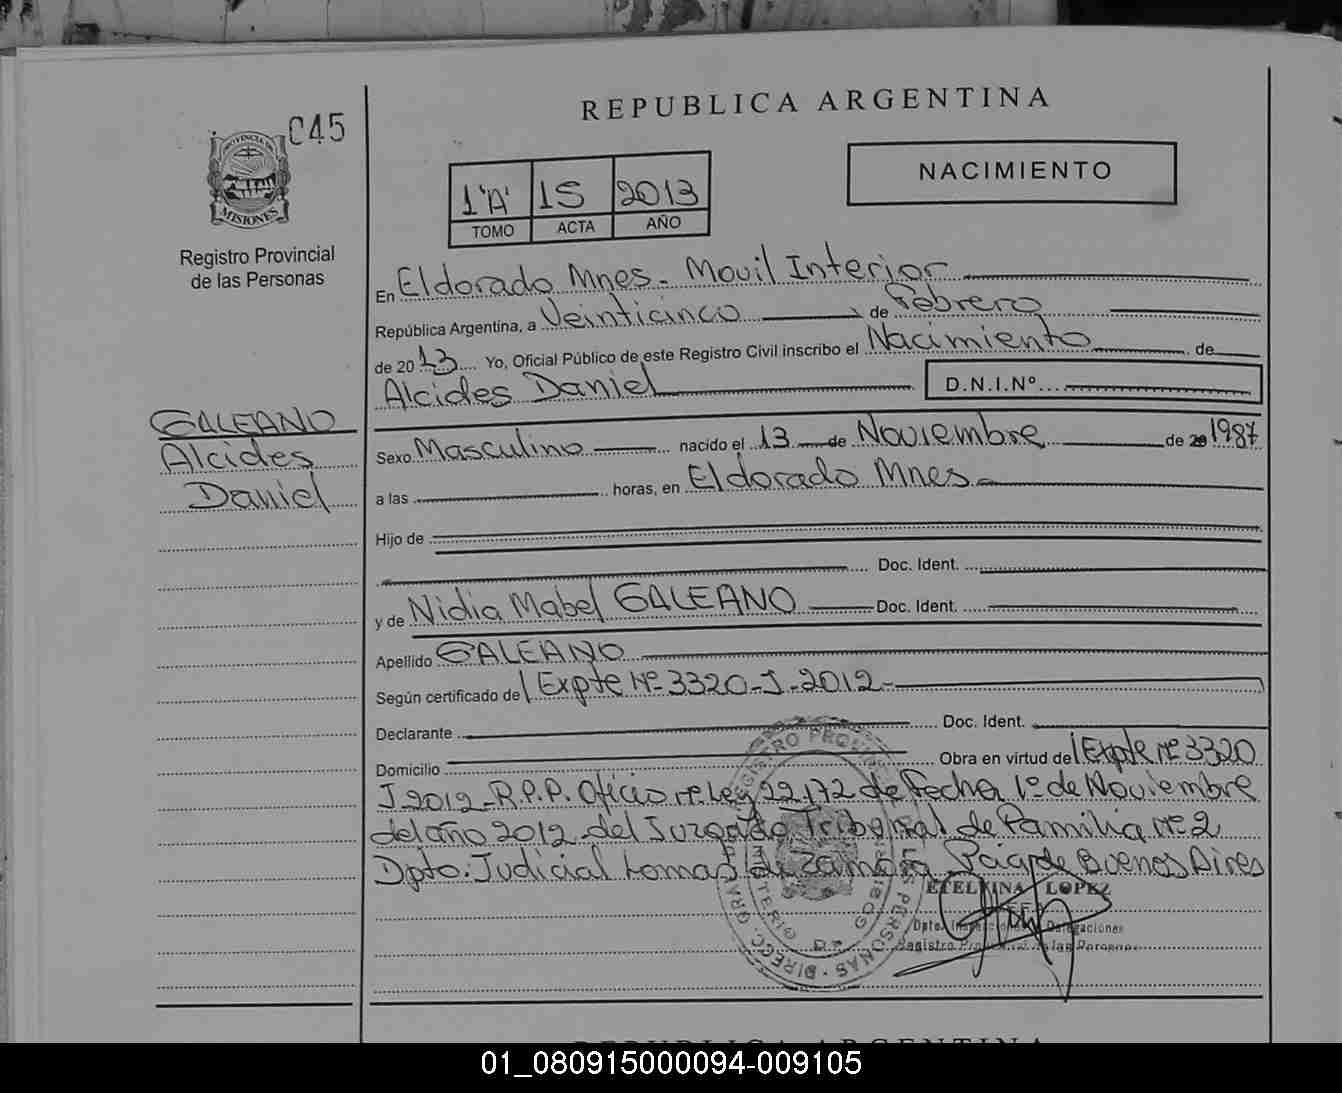 REPUBLICA ARGENTINA
045
PROVINCIA DE
MISIONES
Registro Provincial
de las Personas
NACIMIENTO
1'A' 15 2013
TOMO ACTA AÑO
En Eldorado Mnes. - Movil Interior
República Argentina, a Veinticinco de Febrero
de 2013 Yo, Oficial Público de este Registro Civil inscribo el Nacimiento de
Alcides Daniel D.N.I.Nº
GALEANO
Alcides
Daniel
Sexo Masculino nacido el 13 de Noviembre de 20 1987
a las horas, en Eldorado Mnes.
Hijo de
Doc. Ident.
y de Nidia Mabel GALEANO Doc. Ident.
Apellido GALEANO
Según certificado de Expte Nº 3320-J-2012-
Declarante Doc. Ident.
Domicilio Obra en virtud de Expte Nº 3320
J 2012-R.P.P. Oficio re. Ley 22.172 de Fecha 1º de Noviembre
del año 2012 del Juzgado Tribunal de Familia Nº 2
Dpto. Judicial Lomas de Zamora Pcia de Buenos Aires
ETELVINA LOPEZ
JEFA
Dpto. Inspecciones Delegaciones
Registro Provincial de las Personas
REPUBLICA ARGENTINA
01_080915000094-009105